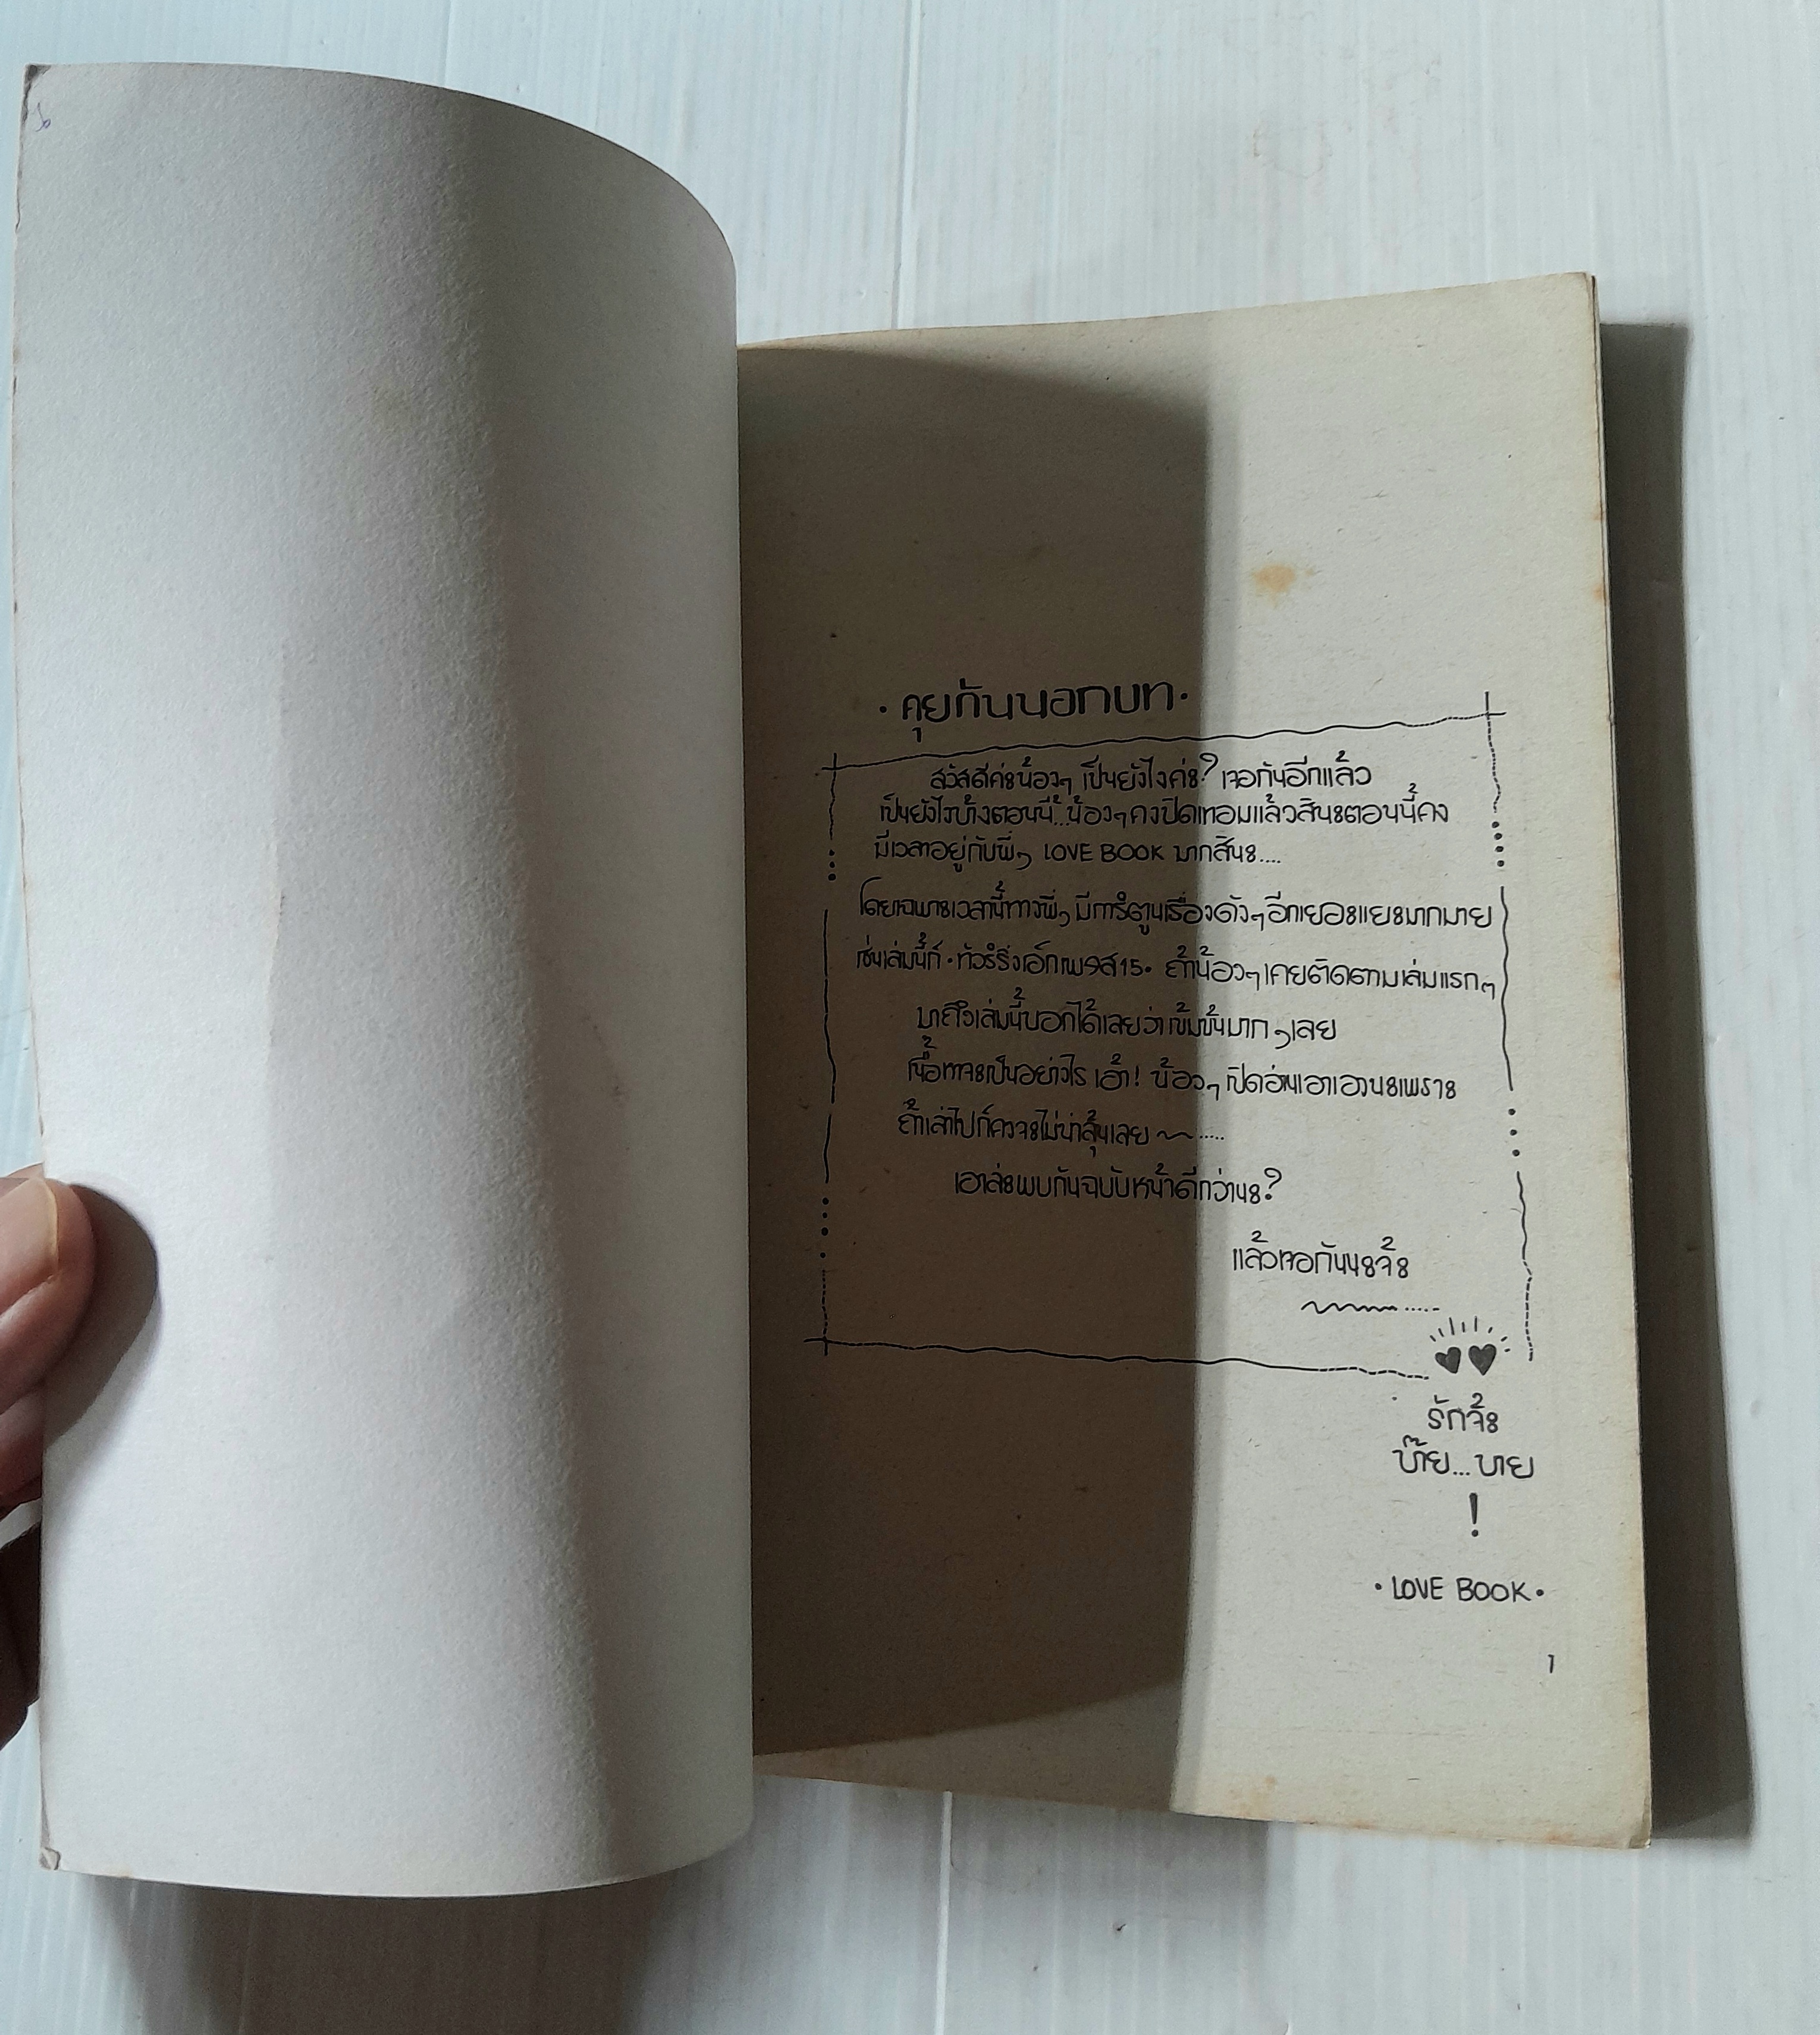 • คุยกันนอกบท •
สวัสดีค่ะน้องๆ เป็นยังไงค่ะ? เจอกันอีกแล้ว
เป็นยังไงบ้างตอนนี้...น้องๆคงปิดเทอมแล้วสินะตอนนี้คง
มีเวลาอยู่กับพี่ๆ LOVE BOOK มากสินะ....
โดยเฉพาะเวลานี้ทางพี่ๆ มีการ์ตูนเรื่องดังๆอีกเยอะแยะมากมาย
เช่นเล่มนี้ก็ • ทัวร์ริ่งเอ็กเพรส 15 • ถ้าน้องๆเคยติดตามเล่มแรกๆ
มาถึงเล่มนี้บอกได้เลยว่าเข้มข้นมากๆเลย
เนื้อหาจะเป็นอย่างไร เอ้า! น้องๆเปิดอ่านเอาเองนะเพราะ
ถ้าเล่าไปก็คงจะไม่น่าลุ้นเลย ~.....
เอาล่ะพบกันฉบับหน้าดีกว่านะ?
แล้วเจอกันนะจ้ะ
รักจ้ะ
บ๊าย...บาย
!
• LOVE BOOK •
1